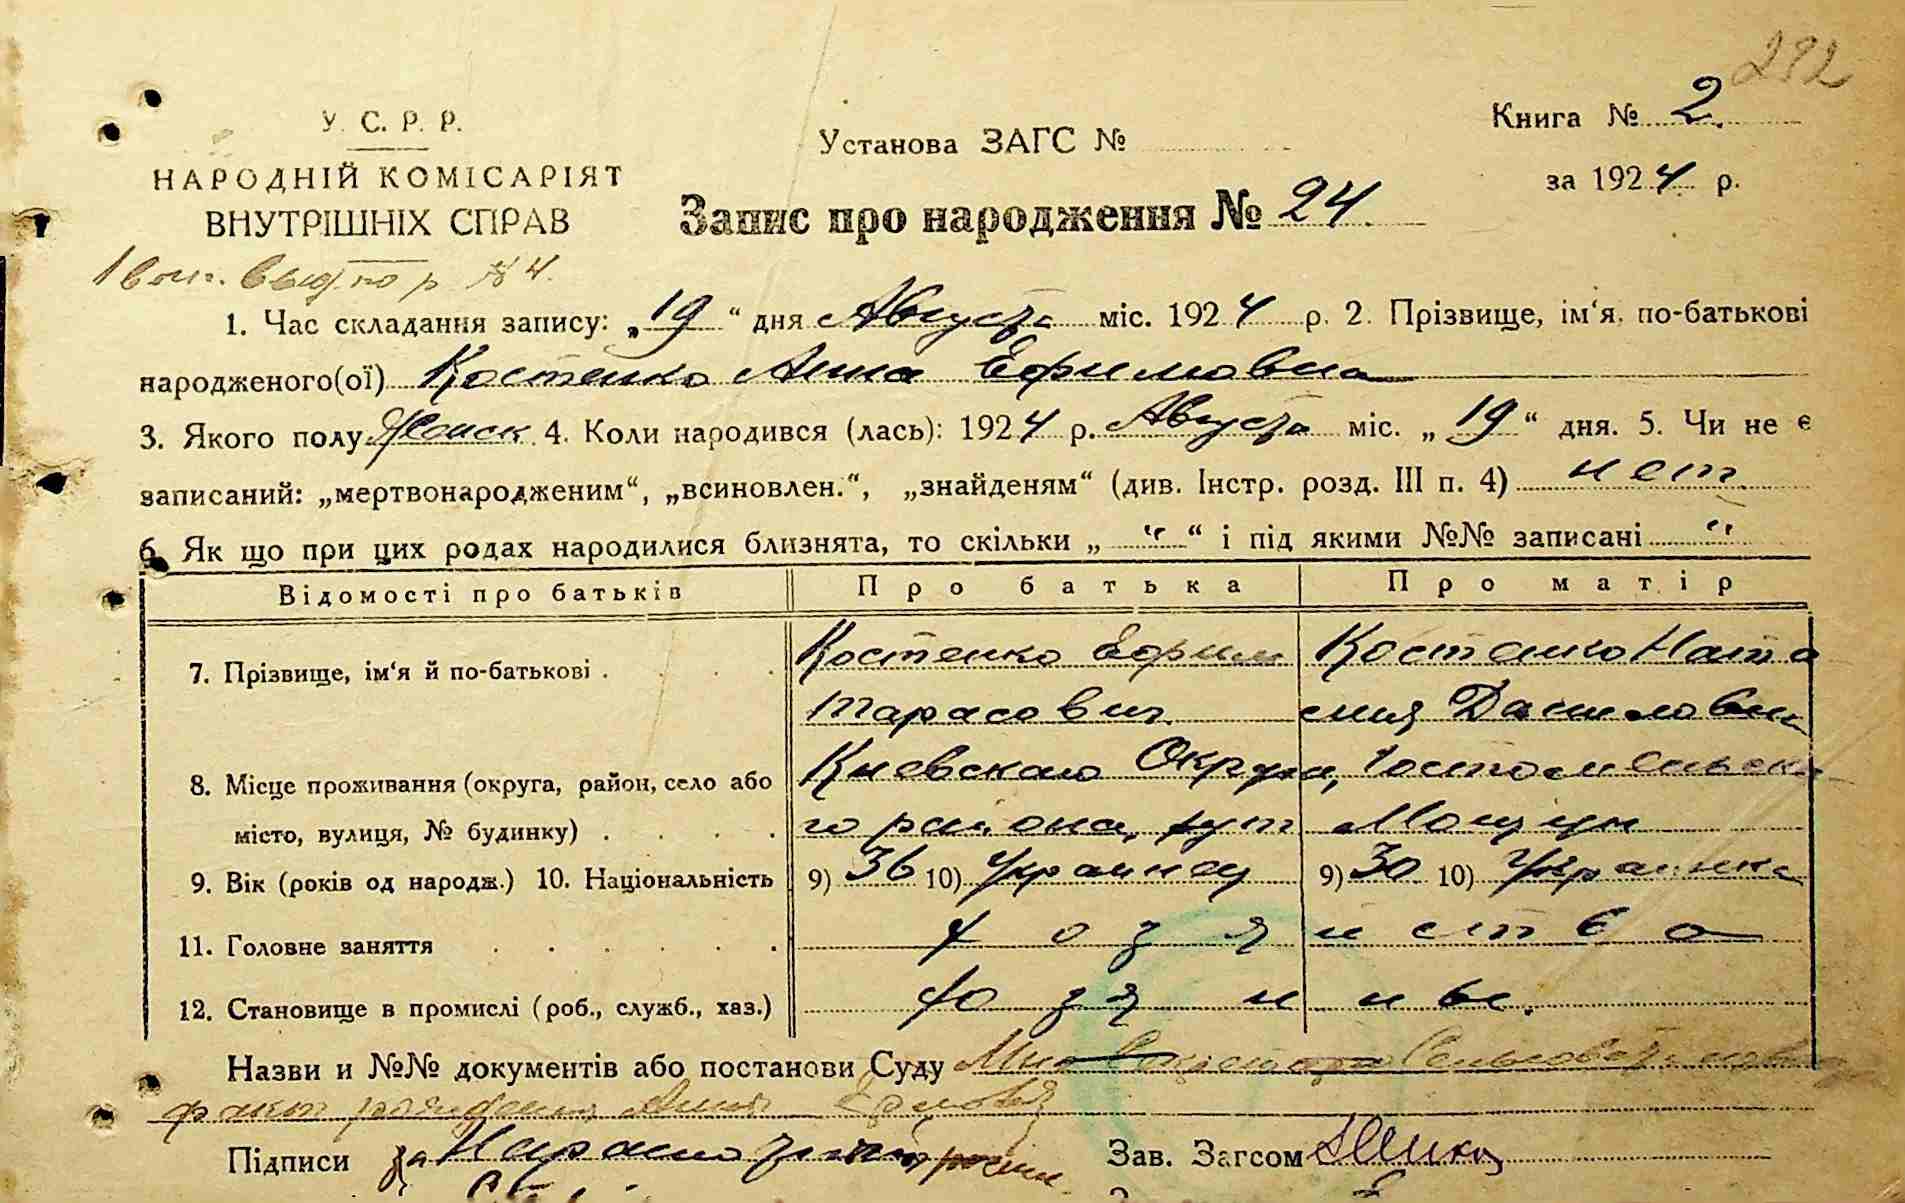 292
У. С. Р. Р.
НАРОДНІЙ КОМІСАРІЯТ
ВНУТРІШНІХ СПРАВ
Установа ЗАГС №
Книга № 2.
за 1924 р.
Запис про народження № 24
№ 4.
1. Час складання запису: „19“ дня Августа міс. 1924 р. 2. Прізвище, ім‘я, по-батькові
народженого(ої) Костенко Анна Ефимовна
3. Якого полу Женск. 4. Коли народився (лась): 1924 р. Августа міс. „19“ дня. 5. Чи не є
записаний: „мертвонародженим“, „всиновлен.“, „знайденям“ (див. Інстр. розд. III п. 4) нет
6. Як що при цих родах народилися близнята, то скільки „ " “ і під якими №№ записані "
Відомості про батьків Про батька Про матір
7. Прізвище, ім‘я й по-батькові . Костенко Ефим Костенко Ната
Тарасович лия Даниловна
8. Місце проживання (округа, район, село або Киевскаго Округа, Гостомельска
місто, вулиця, № будинку) . го района, хут Мощун
9. Вік (років од народж.) 10. Національність 9) 36 10) Украинец 9) 30 10) Украинка
11. Головне заняття хозяйства
12. Становище в промислі (роб., служб., хаз.) хозяины.
Назви и №№ документів або постанови Суду
Підписи Зав. Загсом